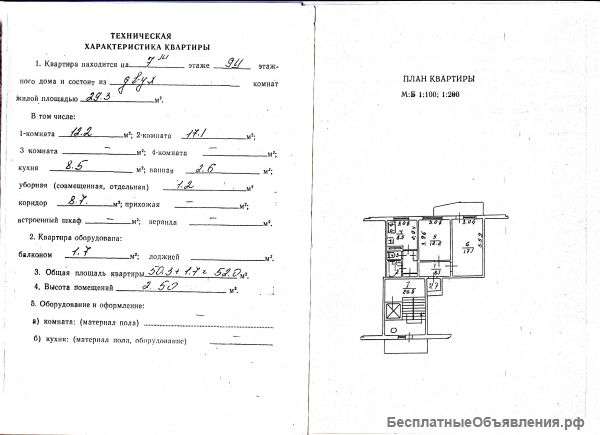 ТЕХНИЧЕСКАЯ
ХАРАКТЕРИСТИКА КВАРТИРЫ
1. Квартира находится на 7м этаже 9ти этаж-
ного дома и состоит из двух комнат
жилой площадью 29.3 м².
В том числе:
1-комната 12.2 м²; 2-комната 17.1 м²;
3 комната — м²; 4-комната — м²;
кухня 8.5 м²; ванная 2.6 м²;
уборная (совмещенная, отдельная) 1.2 м²
коридор 8.7. м²; прихожая — м²;
встроенный шкаф — м²; веранда — м².
2. Квартира оборудована:
балконом 1.7 м²; лоджией м².
3. Общая площадь квартиры 50.3+1.7= 52.0 м².
4. Высота помещений 2.50 м².
5. Оборудование и оформление:
а) комната: (материал пола) —
б) кухня: (материал пола, оборудование) —
ПЛАН КВАРТИРЫ
М:Б 1:100; 1:200
БесплатныеОбъявления.рф